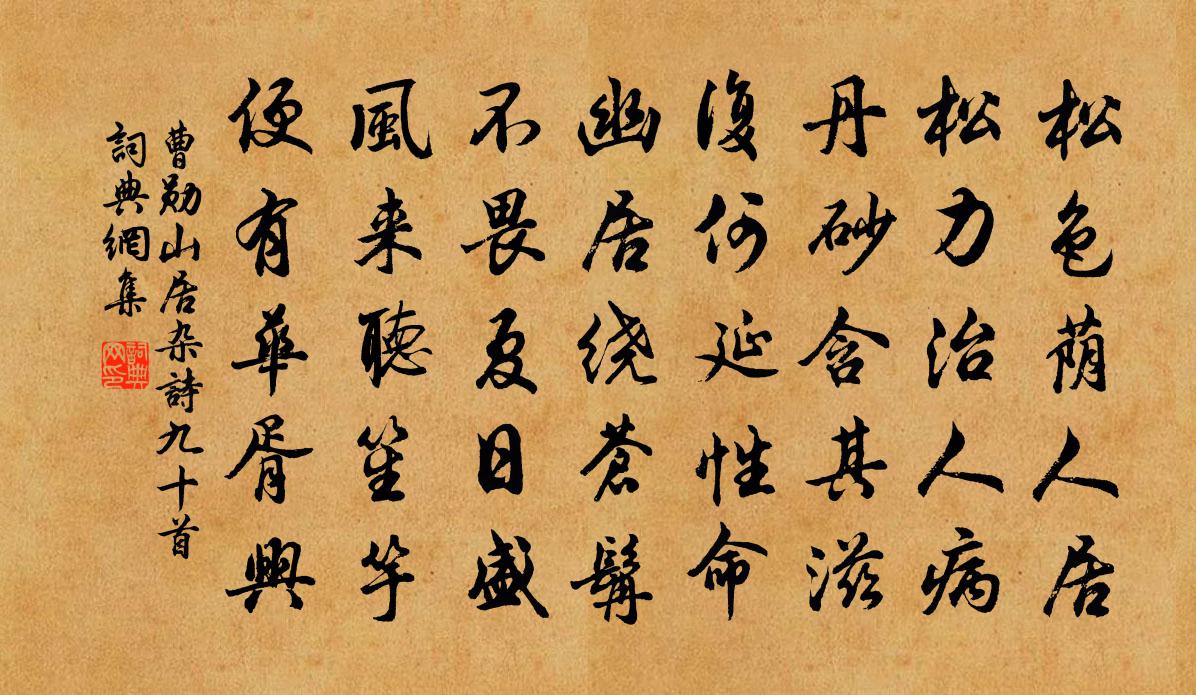 松色荫人居
松力治人病
丹砂含其滋
復何延性命
幽居绕蒼髯
不畏夏日盛
風来聽笙竽
便有華胥興
曹勛山居杂詩九十首
詞典網集
詞典
网印